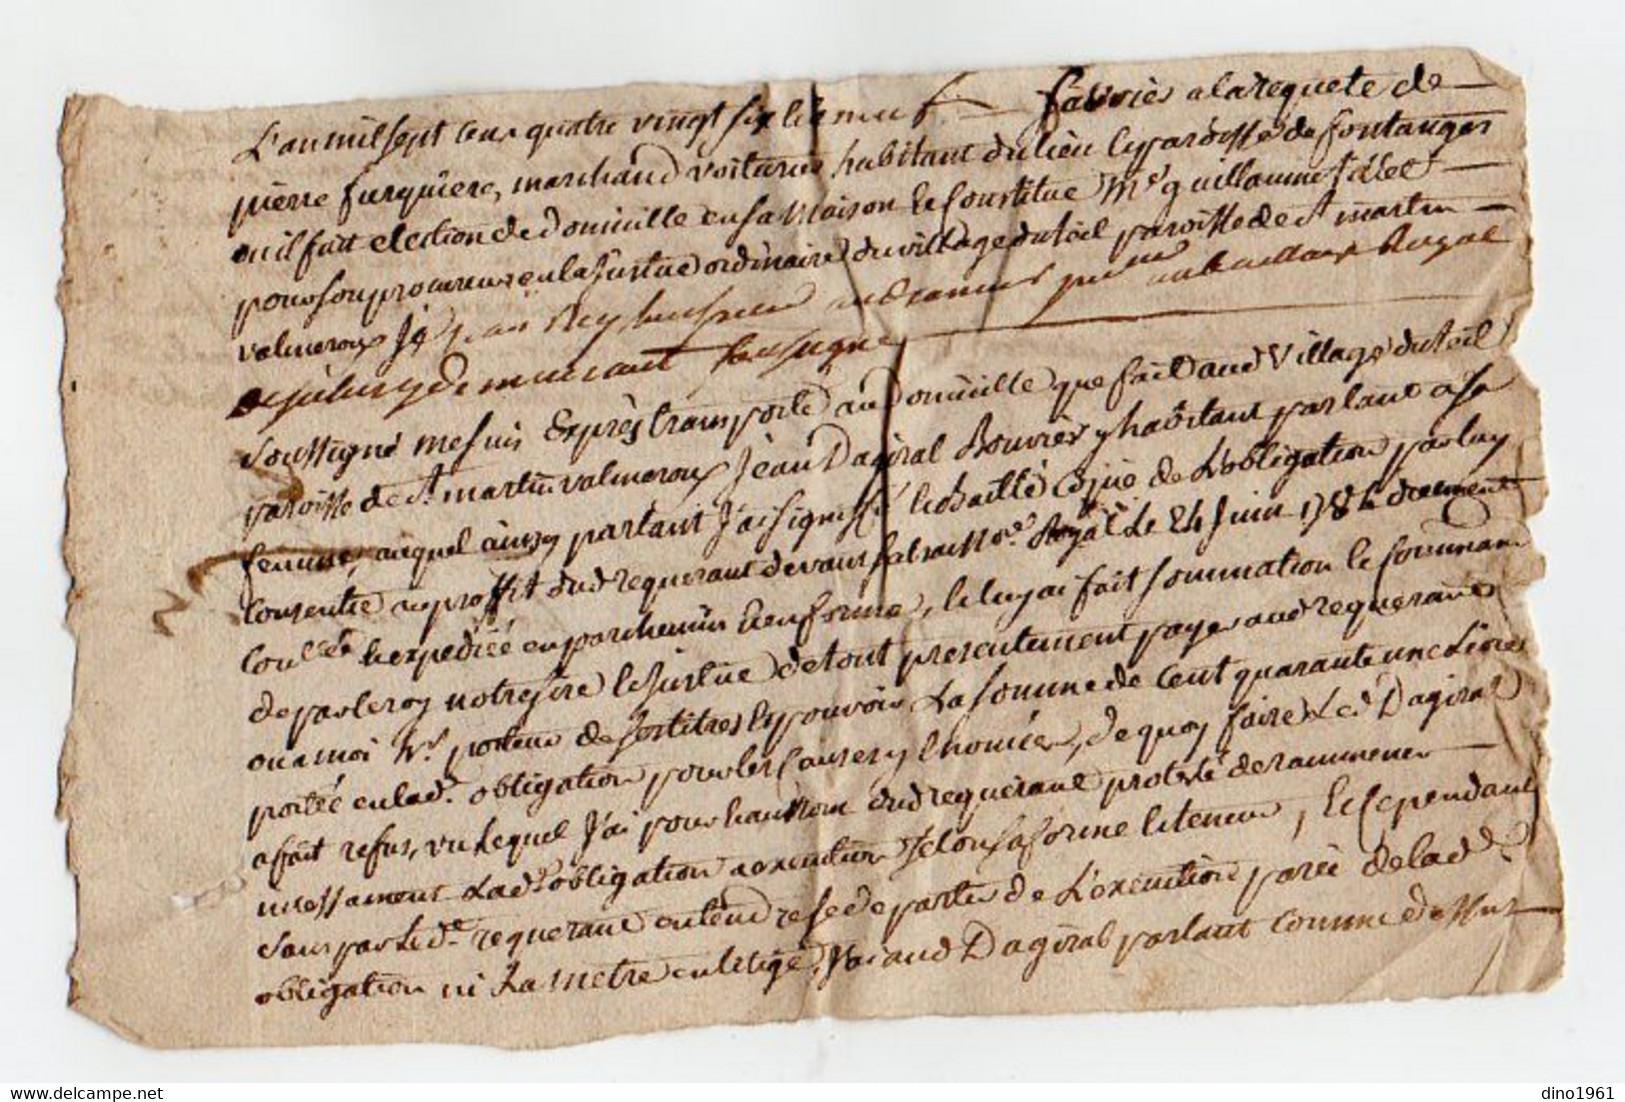 L'an mil sept cent quatre vingt six le neuf fevrier a la requete de
pierre furquiere, marchand voiturier habitant du lieu & paroisse de fontanges
ou il fait election de domicille en sa maison & constitue Me guillaume
pour son procureur en la justice ordinaire du village du teil paroisse de st martin
valmeroux Je jean Rey huissier
soussigné
soussigné me suis exprès transporté au domicille que fait aud village du teil
paroisse de st martin valmeroux Jean Dagiral Bouvier y habitant parlant a sa
femme, auquel ainsy parlant J'ai signiffié & baillé copie de L'obligation par luy
consentie au proffit dud requerant devant Nore Royal le 24 Juin 1784 duement
conllée & expediéé en parchemin & en forme, & luy ai fait sommation & command
de par le roy notre sire & justice de tout presentement payer aud requerant
ou a moi hr porteur de ses titres & pouvoir La somme de cent quarante une Livres
portéé en lad. obligation pour les causes y enoncéés, de quoy faire Led Dagiral
a fait refus, vu Lequel J'ai pour & au Nom dud requerant protesté de rammener
incessament Lad. obligation a execution selon sa forme & teneur, & cependant
sans par Le d. requerant entendre se departir de L'execution paréé de lad
obligation ni La metre en litige, J'ai aud Dagiral parlant comme dessus
dino1961